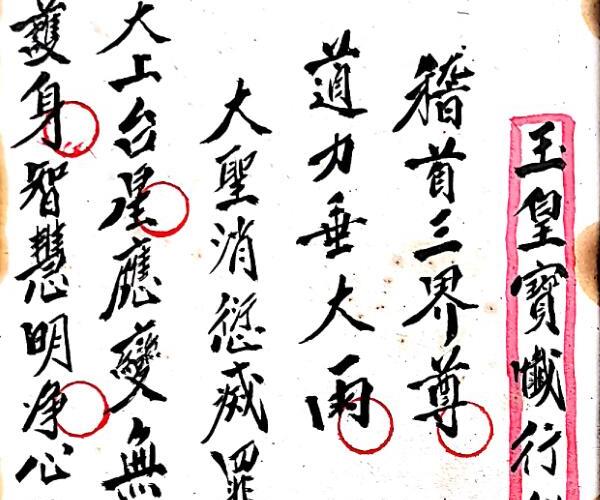 玉皇寶懺行
稽首三界尊
道力垂大雨
大聖消愆滅罪
大上台星應變無
護身智慧明净心